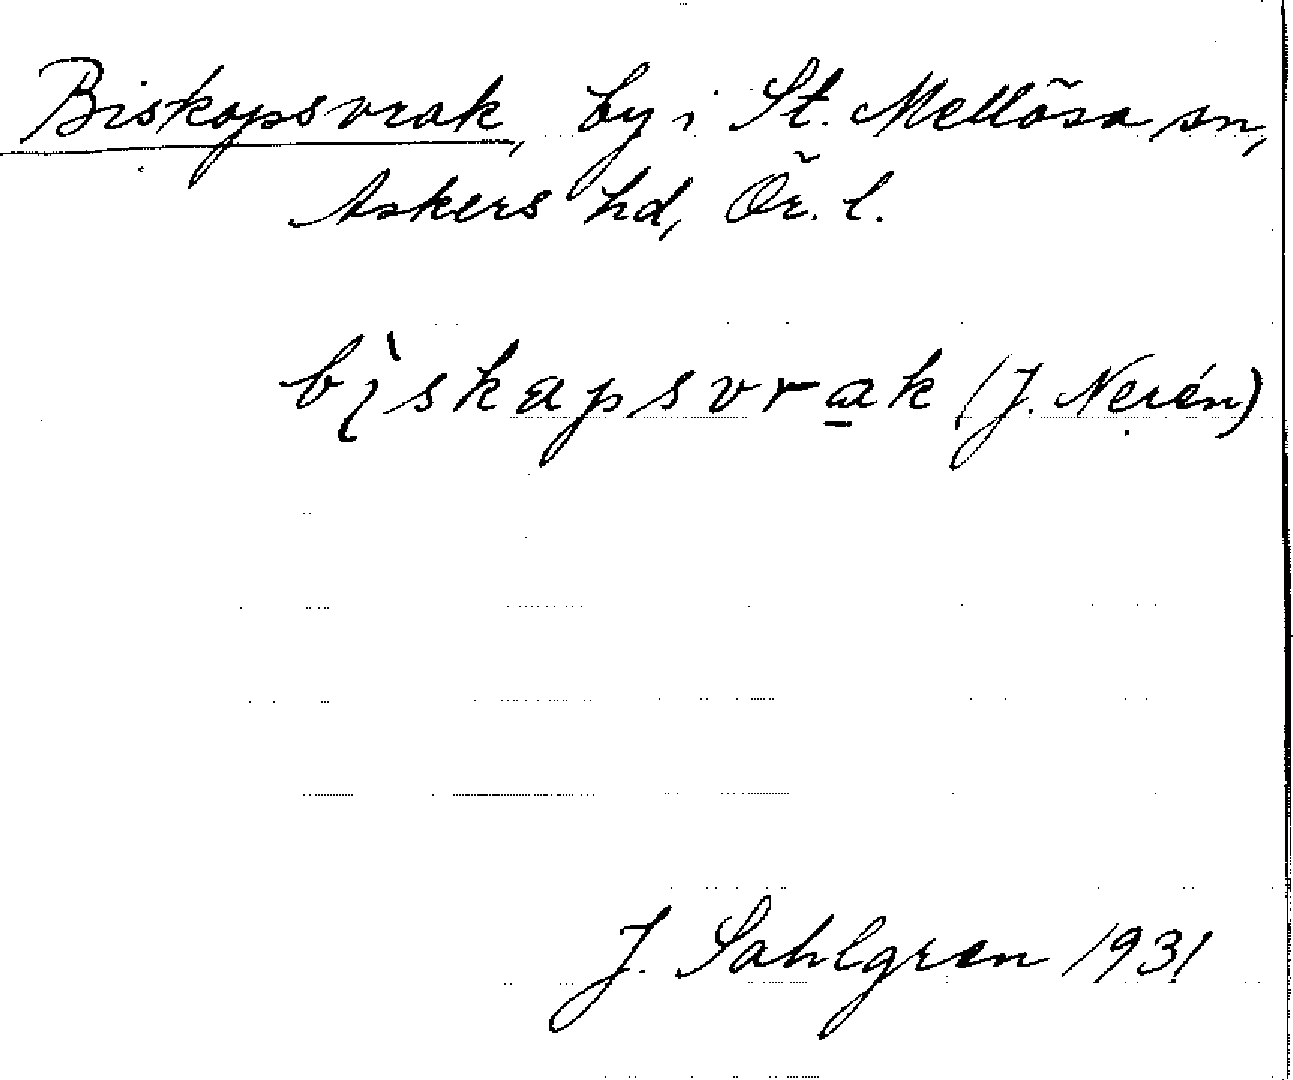 Biskopsvrak, by i St. Mellösa sn,
Askers hd, Ör. l.
bìskapsvrak (J. Nerén)
J. Sahlgren 1931